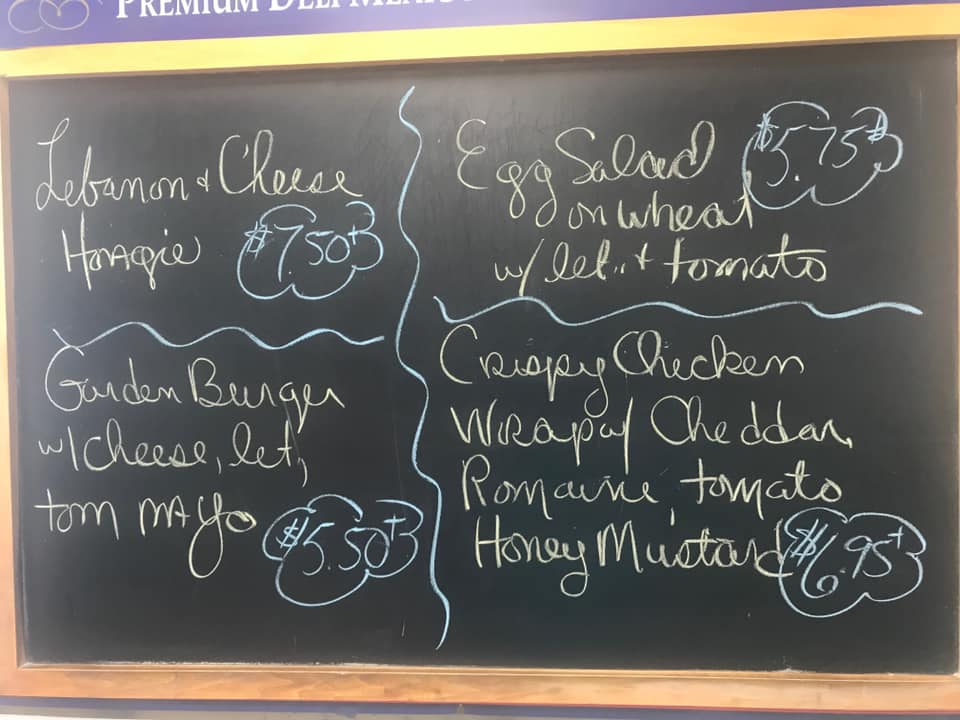 PREMIUM DELI MEATS
Lebanon & Cheese
Hoagie $7.50+
Garden Burger
w/ Cheese, let,
tom mAyo
$5.50+
Egg Salad $5.75+
on wheat
w/ let. + tomato
Crispy Chicken
Wrap w/ Cheddar,
Romaine tomato
Honey Mustard $6.95+